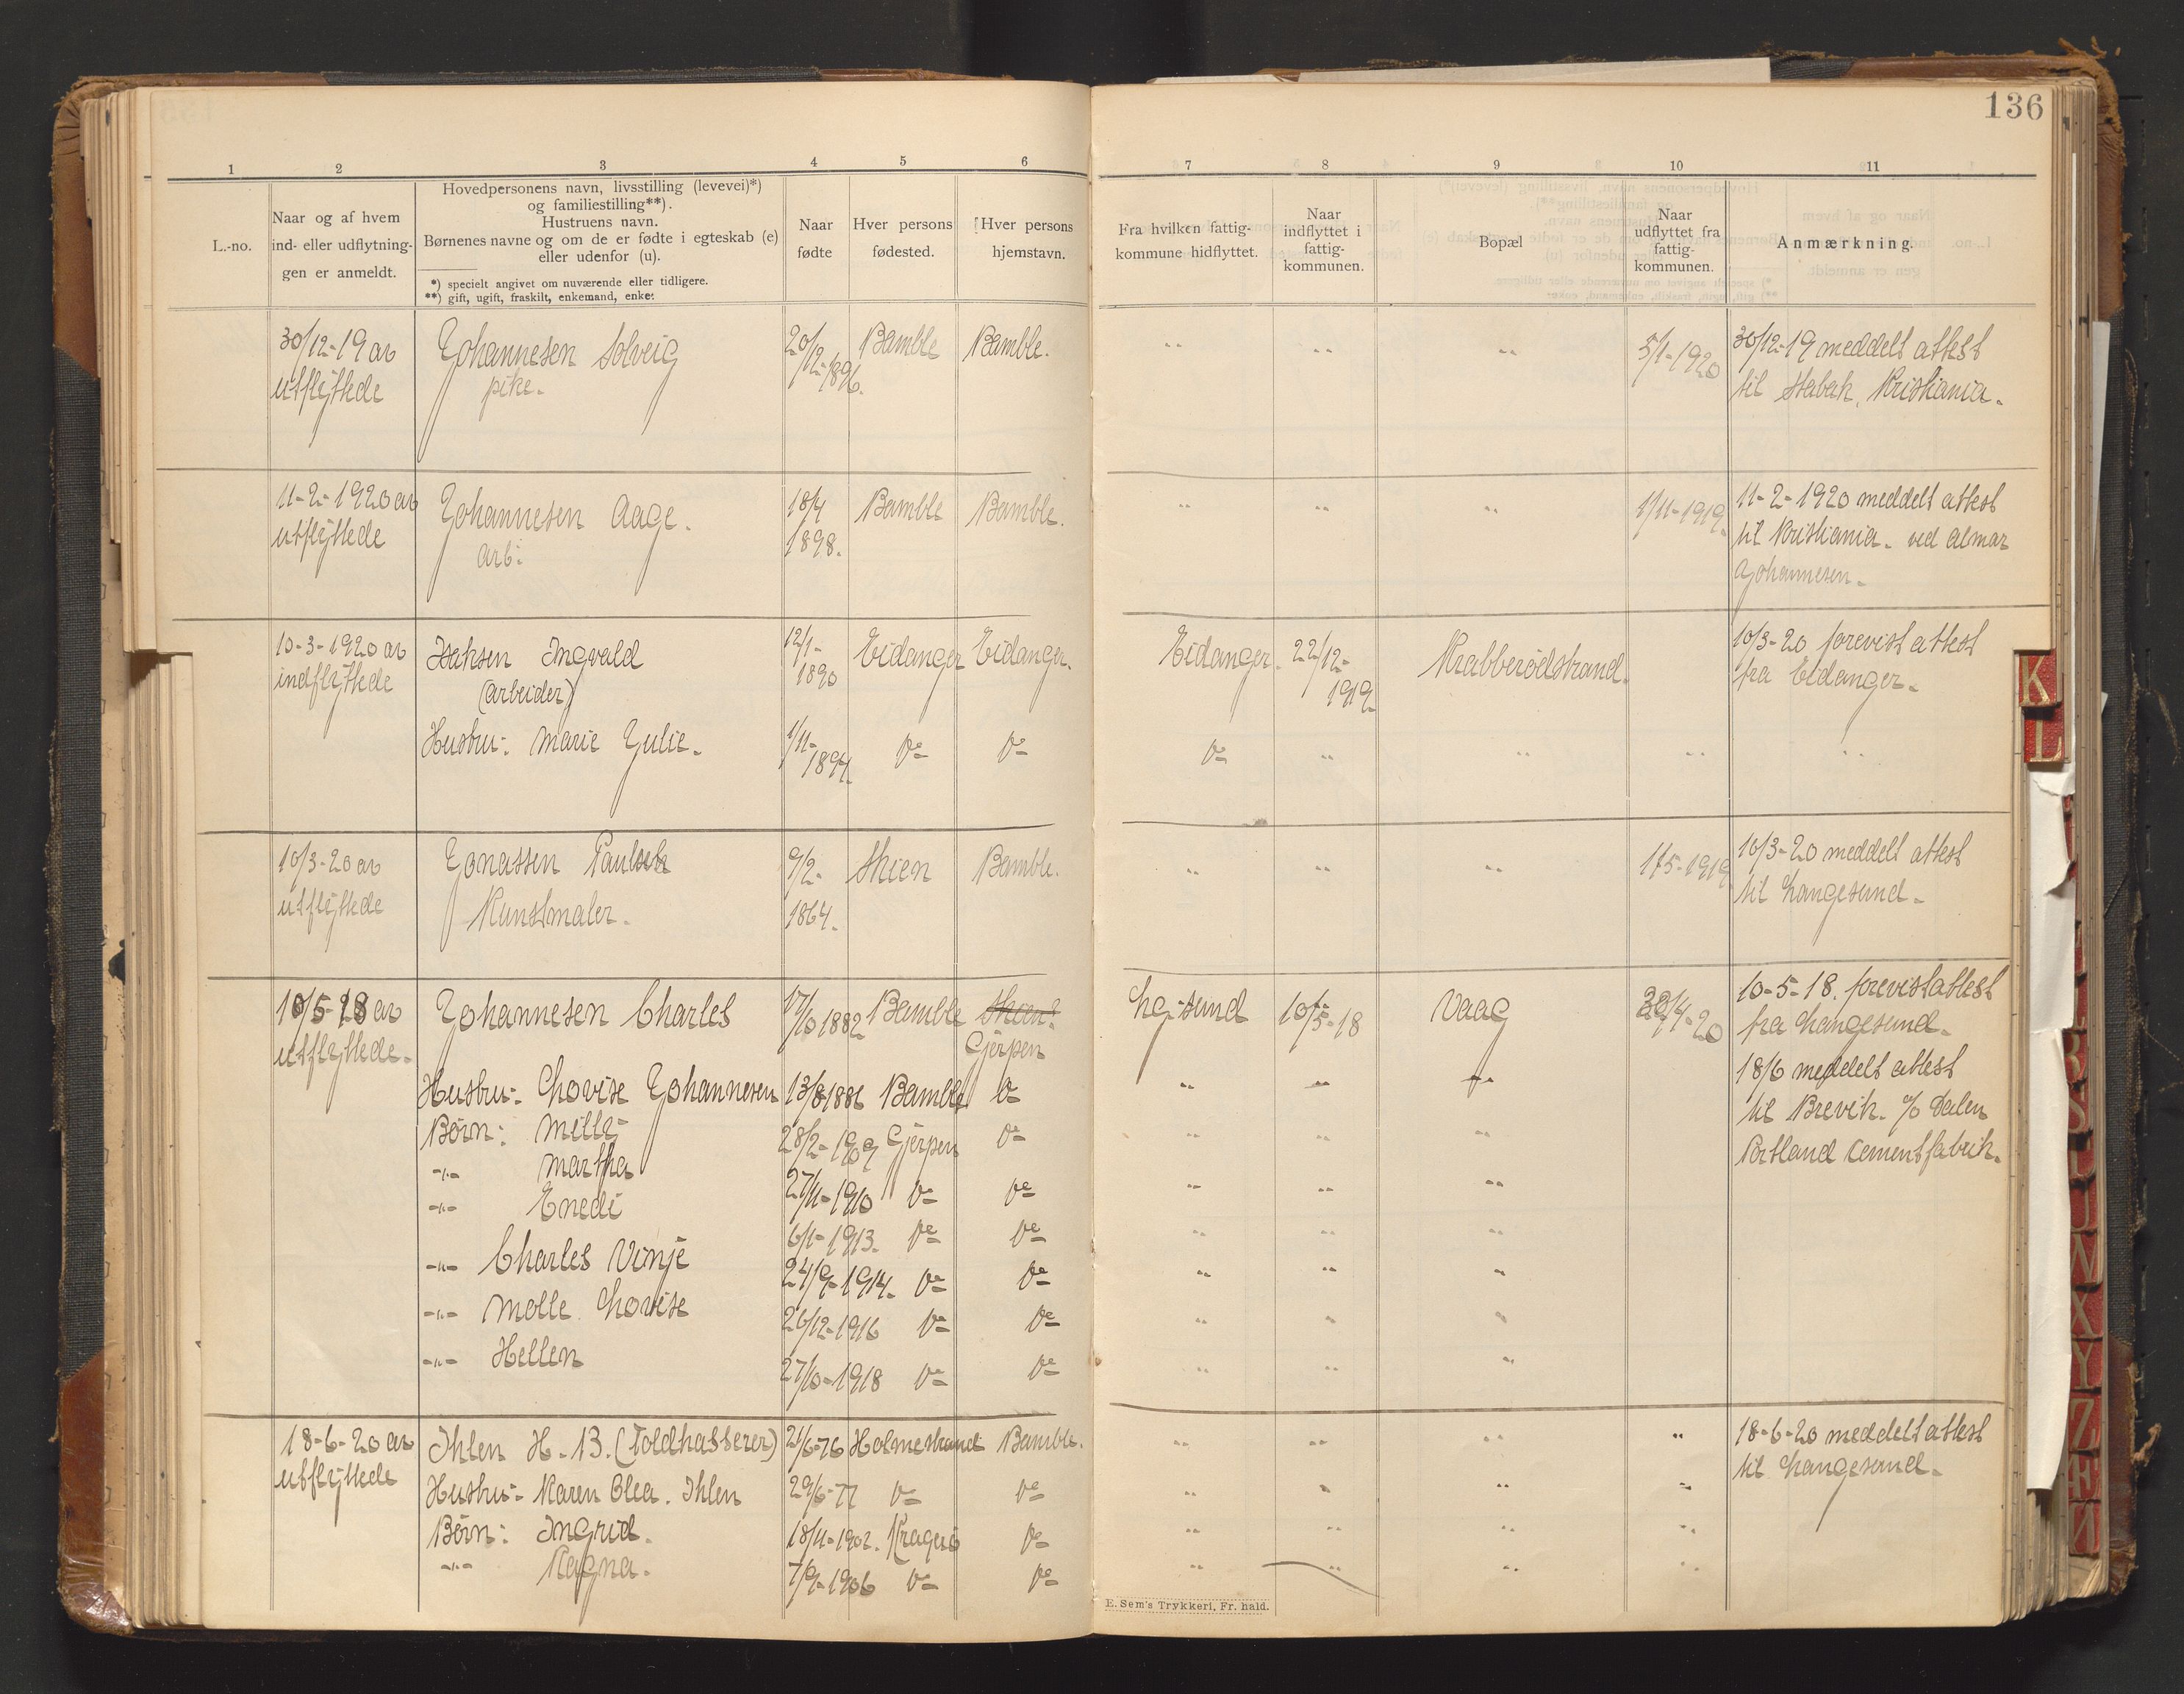 136
1 2 3 4 5 6 7 8 9 10 11
L.-no.
Naar og af hvem
ind- eller udflytnin-
gen er anmeldt.
Hovedpersonens navn, livsstilling (levevei)*)
og familiestilling**).
Hustruens navn.
Børnenes navne og om de er fødte i egteskab (e)
eller udenfor (u).
*) specielt angivet om nuværende eller tidligere.
**) gift, ugift, fraskilt, enkemand, enke.
Naar
fødte
Hver persons
fødested.
Hver persons
hjemstavn.
Fra hvilken fattig-
kommune hidflyttet.
Naar
indflyttet i
fattig-
kommunen.
Bopæl
Naar
udflyttet fra
fattig-
kommunen.
Anmærkning.
30/12-19 av Johannesen Solveig 20/12-1896. Bamble Bamble. " " " 5/1-1920 30/12-19 meddelt attest
utflyttede pike. til Stabæk, Kristiania.
11-2-1920 av Johannesen Aage. 18/4 Bamble Bamble. " " " 1/11-1919. 11-2-1920 meddelt attest
utflyttede arb: 1898. til Kristiania. ved Almar
Johannesen.
10-3-1920 av Isaksen Ingvald 12/1- Eidanger Eidanger. Eidanger. 22/12- Krabberødstrand. 10/3-20 forevist attest
indflyttede (arbeider) 1890 1919. fra Eidanger.
Hustru: Marie Julie. 1/11-1894. Do Do Do " " " "
10/3-20 av Jonassen Paulsen 9/2- Skien Bamble. " " " 1/5-1919 10/3-20 meddelt attest
utflyttede Kunstmaler. 1864. til Langesund.
10/5-18 av Johannesen Charles 17/10 1882 Bamble Skien? Lg-sund 10/5-18 Vaag 30/4-20 10-5-18. forevist attest
utflyttede. Gjerpen fra Langesund.
Hustru: Lovise Johannesen 13/8 1886 Bamble Do " " " 18/6 meddelt attest
til Brevik. c/o Dalen
Børn: Milly 28/2-1909 Gjerpen Do " " "
Portland Cementfabrik.
-"- Martha 27/11-1910 Do Do " " "
-"- Enedi 6/1-1913. Do Do " " "
-"- Charles Vinje 24/9-1914. Do Do " " "
-"- Molle Lovise 26/12-1916 Do Do " " "
-"- Hellen 27/10-1918 Do Do " " "
18-6-20 av Ihlen H. B. (Toldkasserer) 21/6-76 Holmestrand Bamble. " " " " 18-6-20 meddelt attest
utflyttede Hustru: Karen Olea. Ihlen 29/6-77 Do Do " " " " til Langesund.
Børn: Ingrid. 18/4-1902. Kragerø Do " " " "
-"- Ragna. 7/9-1906 Do Do " " " "
E. Sem's Trykkeri, Fr. hald.
K
L
R
S
U
X
Y
Z
Æ
Ø